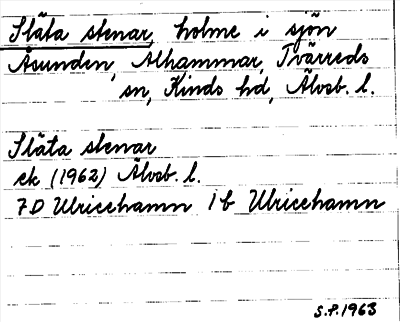 Släta stenar, holme i sjön
Åsunden, Alhammar, Tvärreds
sn, Kinds hd, Älvsb. l.
Släta stenar
ek (1962) Älvsb. l.
7D Ulricehamn 1b Ulricehamn
S.P. 1963